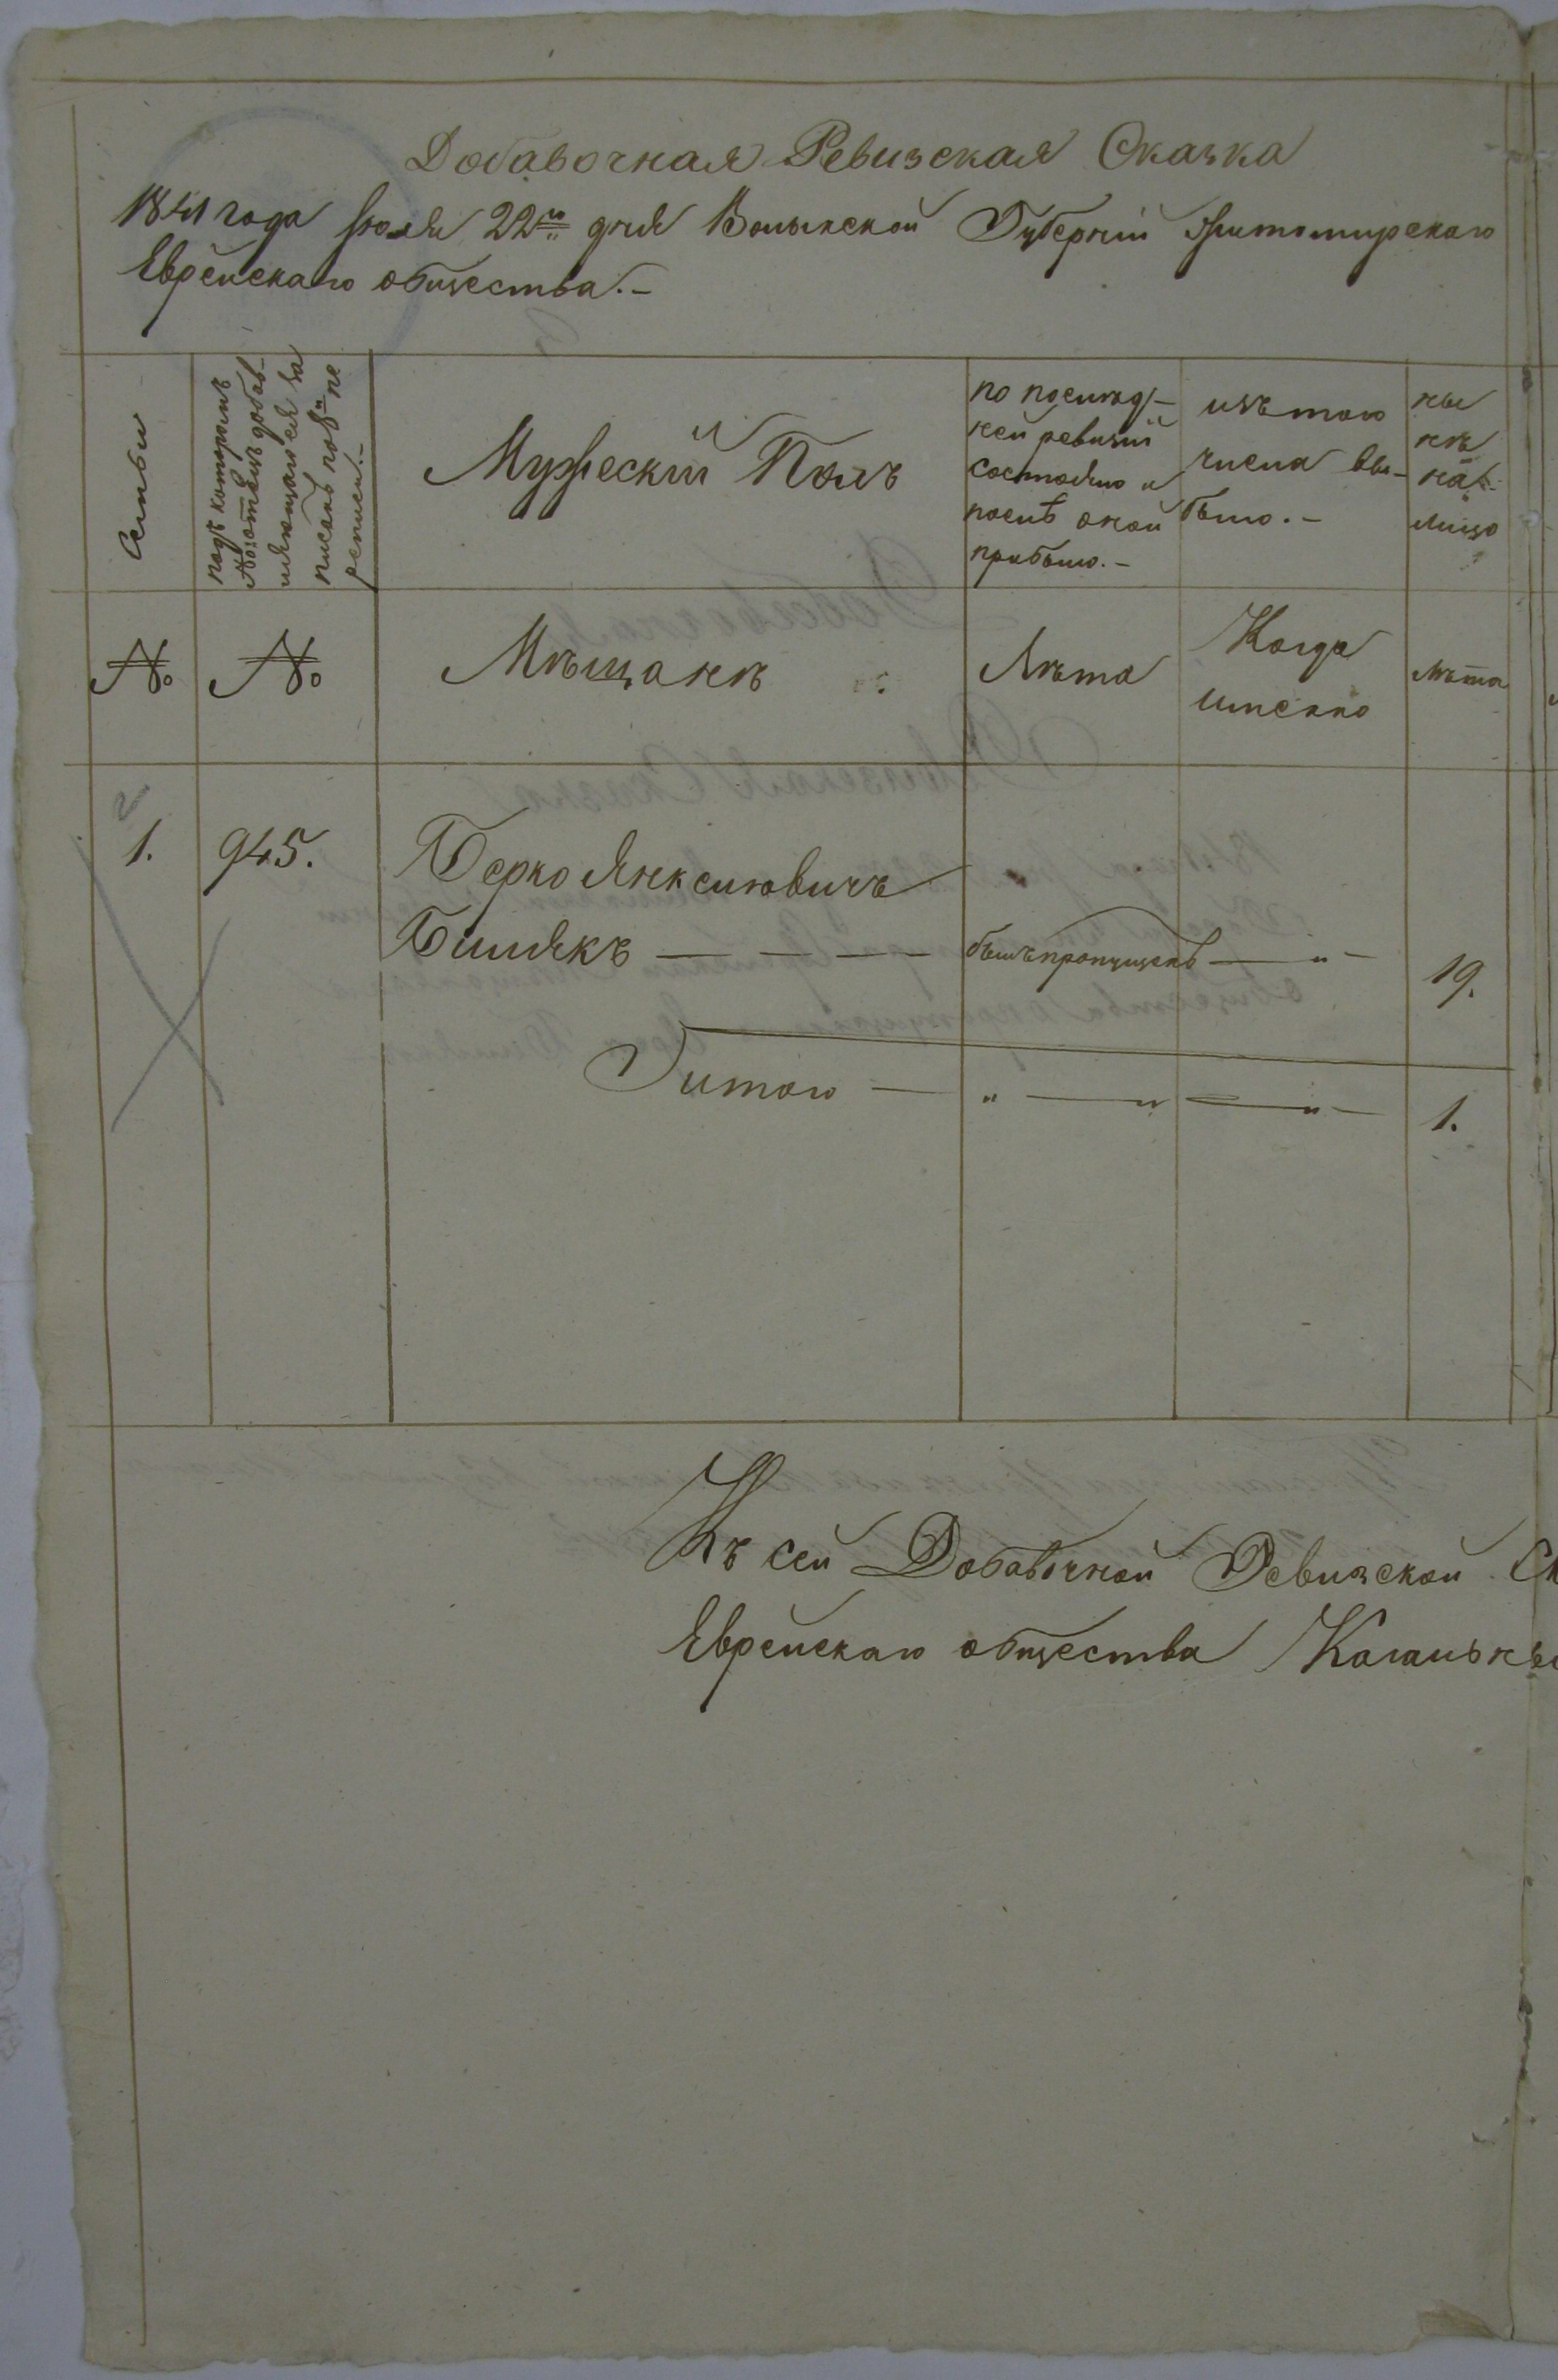 Добавочная Ревизская Сказка
1841 года Іюля 22го дня Волынской Губерніи Житомирскаго
Еврейскаго общества.-
Семьи
подъ которымъ
№ отецъ добав-
ляющагося за
писанъ по 8й пе
реписи.-
Мужескій Полъ
по послѣд-
ней ревизіи
состояло и
послѣ оной
прибыло.-
изъ того
числа вы-
было.-
ны
нѣ
на-
лицо
№
№
Мѣщанъ
Лѣта
Когда
именно
лѣта
1.
945.
Берко Янкелювичъ
Билякъ — — — — былъ пропущенъ — „ —
19.
Итого — „ — „ — „ —
1.
Къ сей Добавочной Ревизской Ск
Еврейскаго общества Кагальны